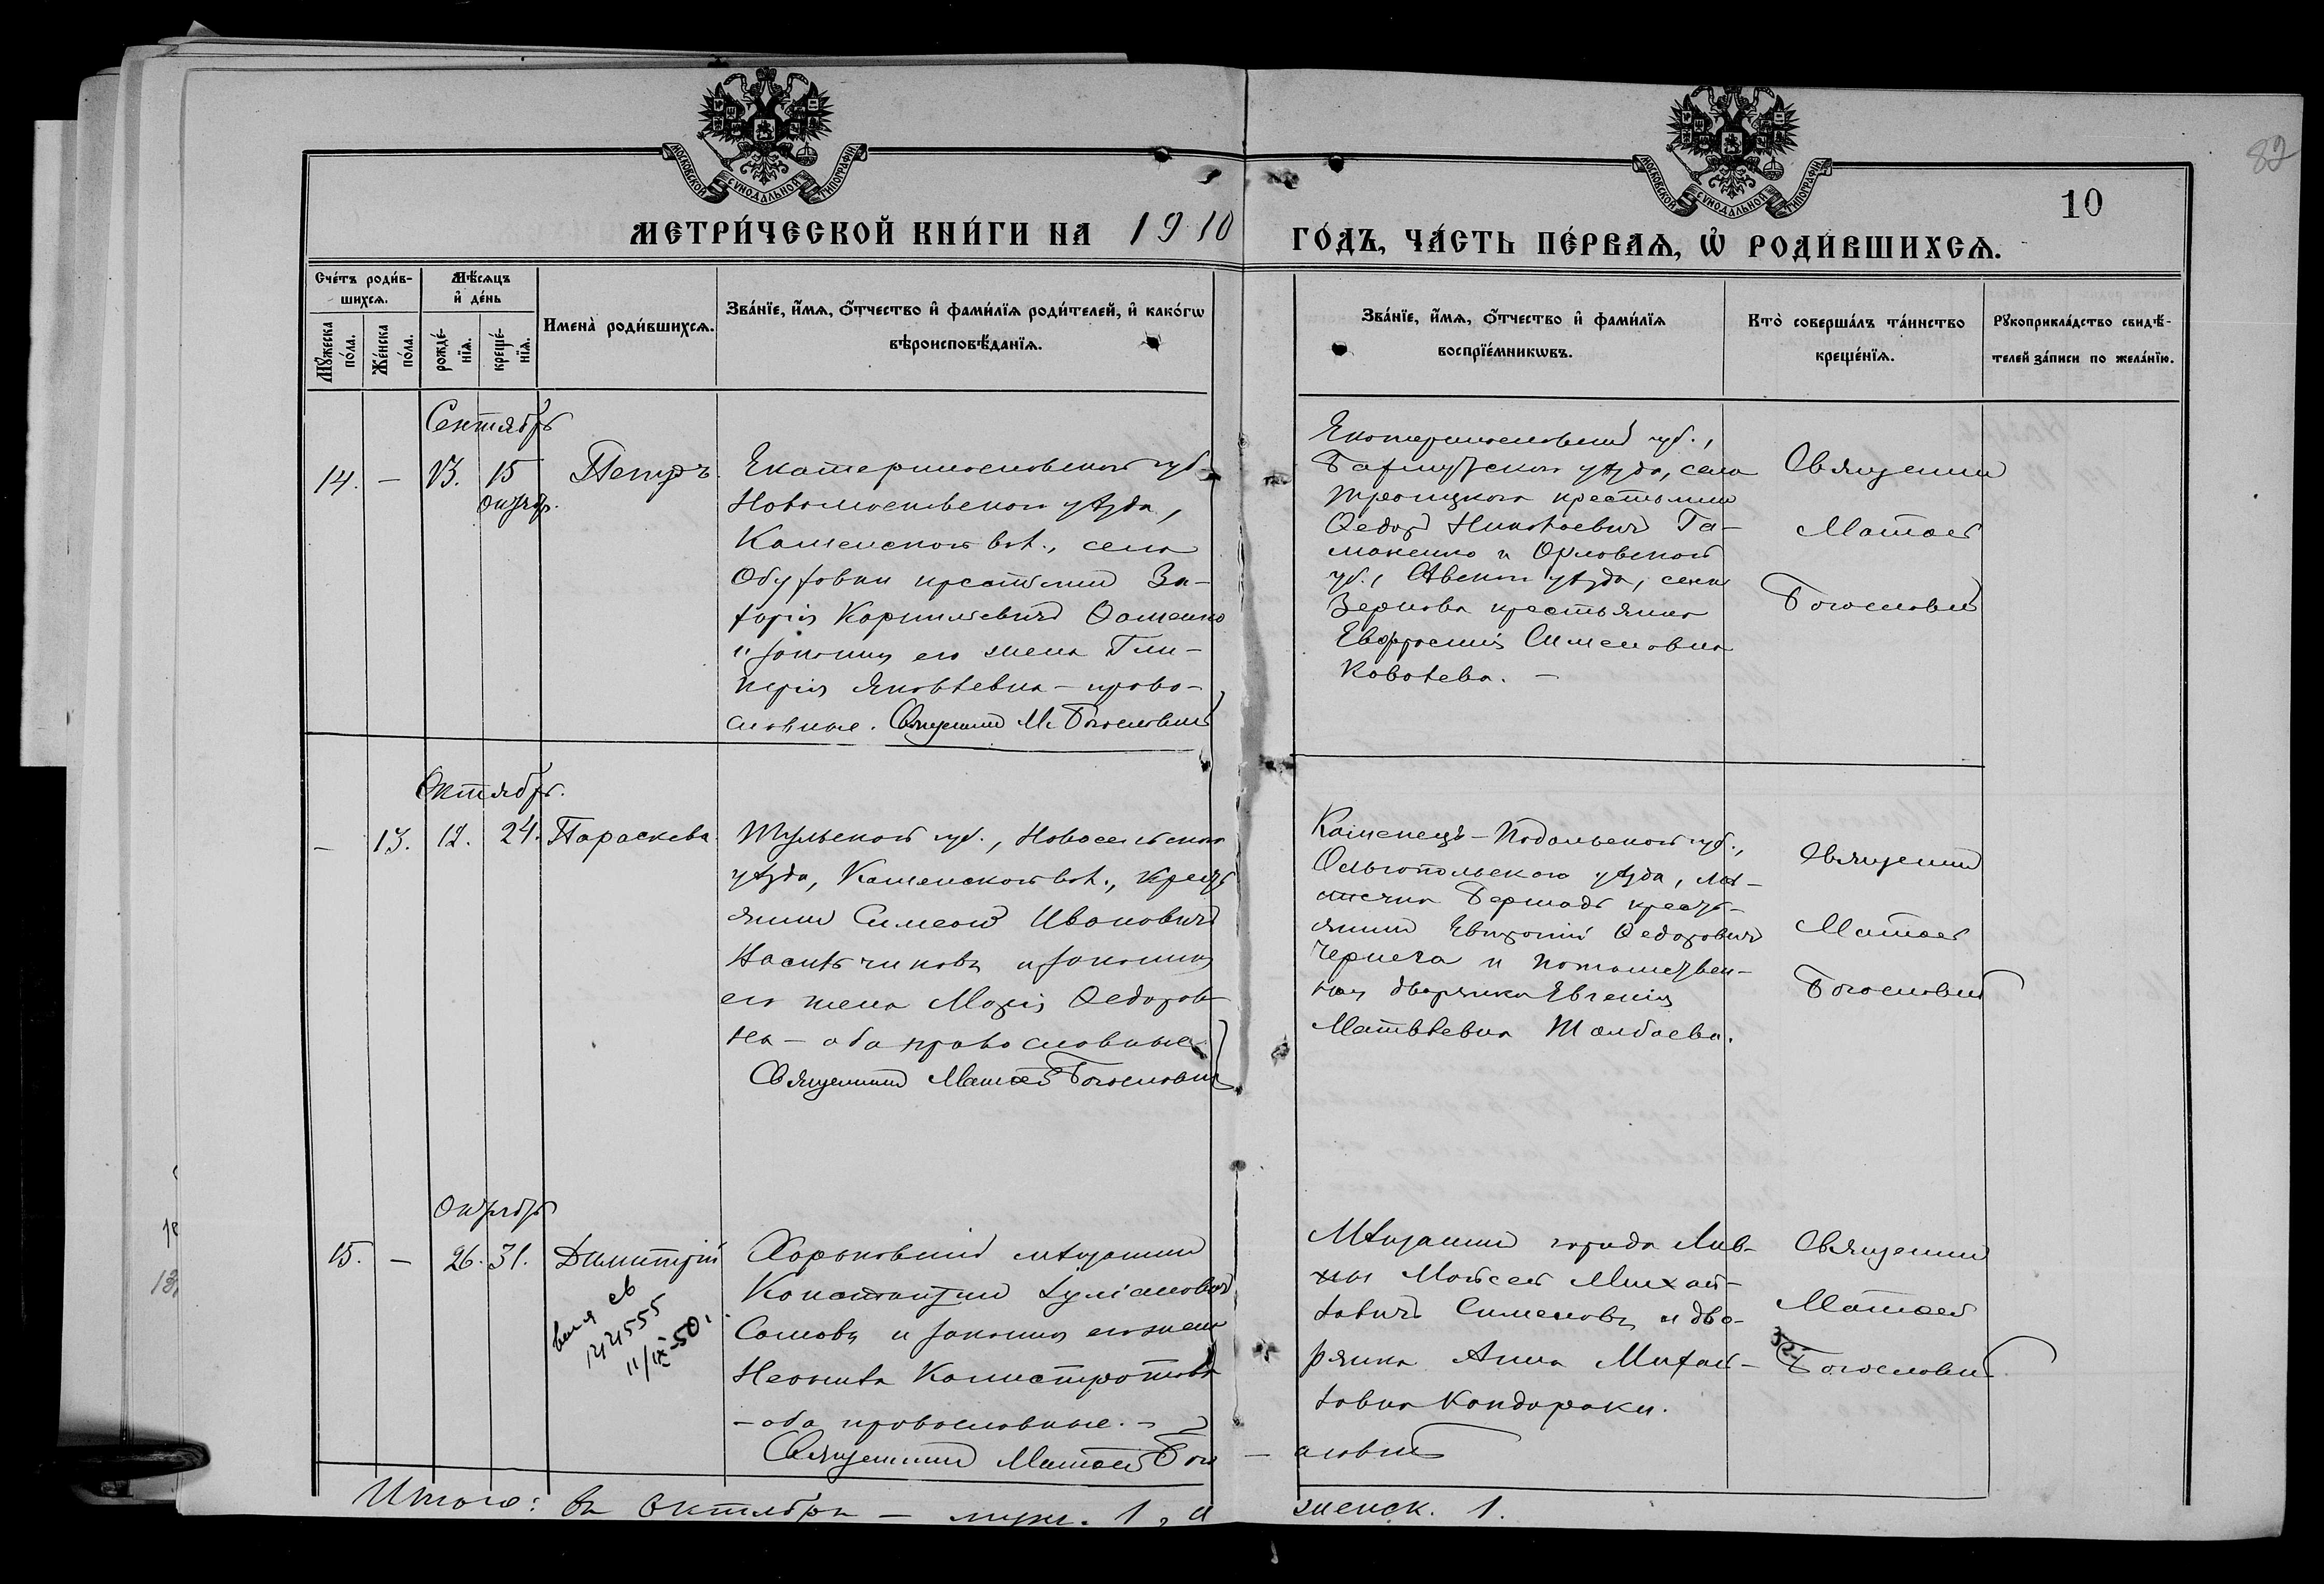 82
10
МОСКОВСКОЙ СѴНОДАЛЬНОЙ ТИПОГРАФІИ
МОСКОВСКОЙ СѴНОДАЛЬНОЙ ТИПОГРАФІИ
МЕТРИ́ЧЕСКОЙ КНИ́ГИ НА 1910
ГО́ДЪ, ЧА́СТЬ ПЕ́РВАЯ, Ѡ҆ РОДИ́ВШИХСЯ.
Сче́тъ роди́в-
шихся.
Мꙋ́жеска
по́ла.
Же́нска
по́ла.
Мѣ́сяцъ
и҆ де́нь
рожде́-
нїя.
креще́-
нїя.
Имена̀ роди́вшихся.
Зва́нїе, и҆́мя, ѻ҆́тчество и҆ фами́лїя роди́телей, и҆ како́гѡ
вѣроисповѣ́данїя.
Зва́нїе, и҆́мя, ѻ҆́тчество и҆ фами́лїя
воспрїе́мникѡвъ.
Кто̀ соверша́лъ та́инство
креще́нїя.
Рꙋкоприкла́дство свидѣ́-
телей за́писи по жела́нїю.
Сентябрь
14. – 13. 15 Петръ.
октяр.
Екатеринославской губ.
Новомосковскаго уѣзда,
Каменской вол., села
Обуховки крестьянинъ За-
харія Корниліевичъ Фоменко
и законная его жена Гли-
керія Яковлевна – право-
славные. Священникъ М. Богословскій
Екатеринославской губ.,
Бахмутскаго уѣзда, села
Троицкаго крестьянинъ
Ѳедоръ Николаевичъ Га-
маненко и Орловской
губ., Сѣвскаго уѣзда, села
Зернова крестьянка
Евфросинія Сименовна
Ковалева. –
Священникъ
Матѳей
Богословскій
Октябрь.
– 13. 12. 24. Параскева.
Тульской губ., Новосильскаго
уѣзда, Каменской вол., крест
янинъ Симеонъ Ивановичъ
и законная
его жена Марія Ѳедоров-
на – оба православные.
Священникъ Матѳей Богословскій
Каменецъ-Подольской губ.,
Ольгопольскаго уѣзда, мѣ-
стечка Бершадь кресть-
янинъ Ѳедоровичъ
Чернега и потомствен-
ная дворянка Евгенія
Матвѣевна Толбаева.
Священникъ
Матѳей
Богословскій
Октябрь
15. – 26. 31. Димитрій
св
144555
11/IX-50.
Харьковскій мѣщанинъ
Константинъ Іуліановичъ
Сомовъ и законная его жена
Неонила Калистратова
– оба православные. –
Священникъ Матѳей Бого – словскій
Мѣщанинъ города Лив-
ны Моисей Михай-
ловичъ Сименовъ и дво-
рянка Анна Михай-
ловна Кондараки.
Священникъ
Матѳей
Богословскій
Итого: въ Октябрѣ – муж. 1, а женск. 1.